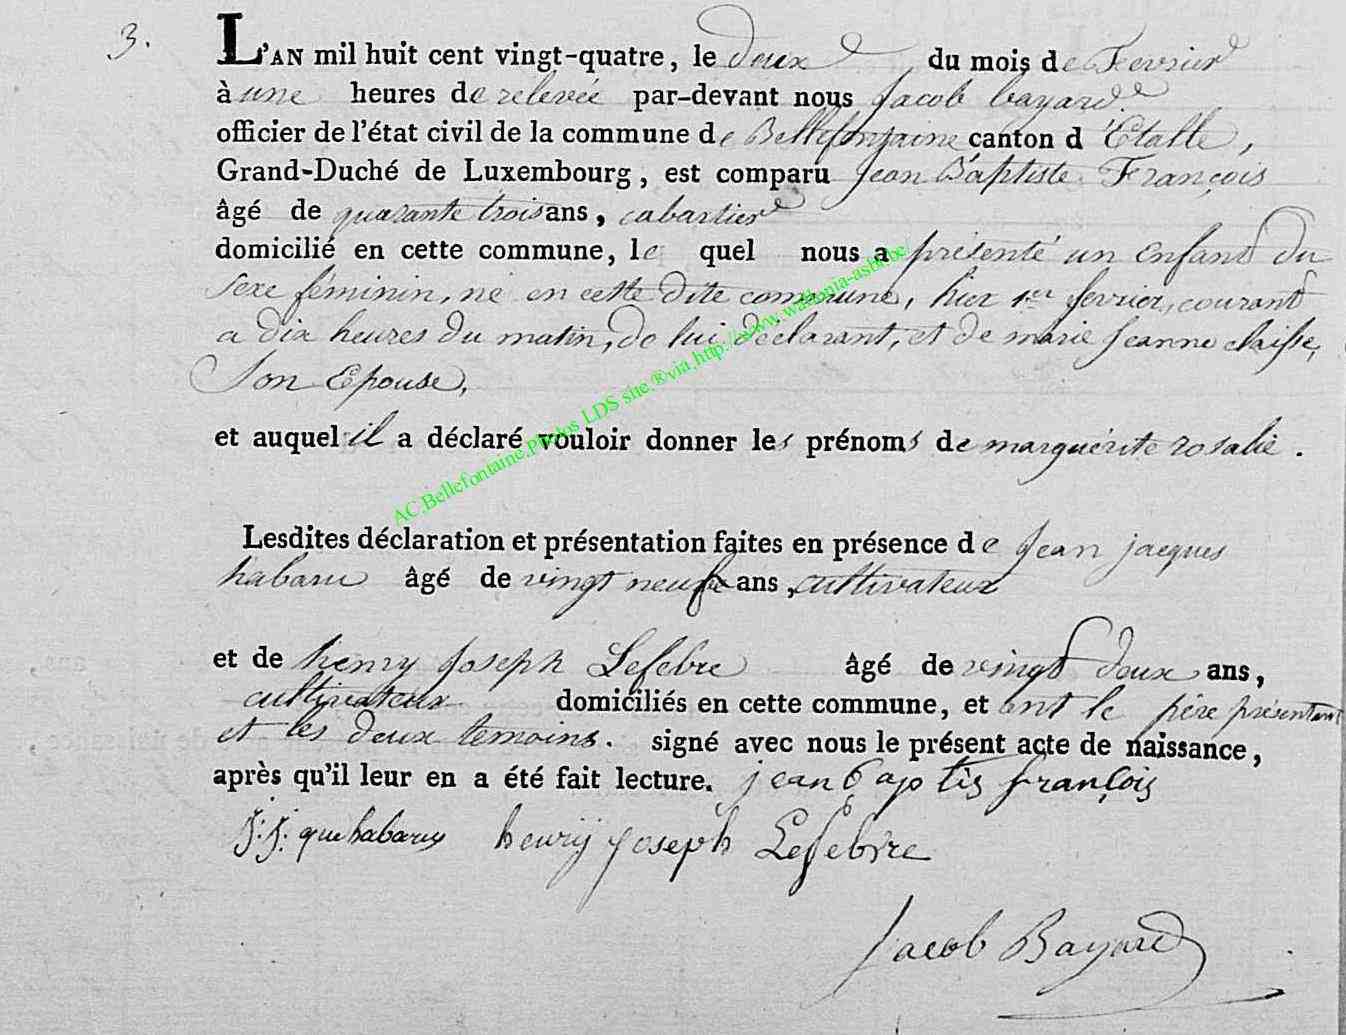 3.
L'AN mil huit cent vingt-quatre, le deux du mois de Fevrier
à une heures de relevée par-devant nous Jacob bayard
officier de l'état civil de la commune de Bellefontaine canton d'Etalle,
Grand-Duché de Luxembourg, est comparu Jean Baptiste François
âgé de quarante trois ans, cabartier
domicilié en cette commune, le quel nous a présenté un enfant du
sexe féminin, né en cette dite commune, hier 1er fevrier, courant
a dix heures du matin, de lui déclarant, et de marie jeanne claisse,
Son Epouse,
et auquel il a déclaré vouloir donner les prénoms de marguérite rosalie.
AC.Bellefontaine.photos LDS site.®via.http://www.wallonia-asbl.be/
Lesdites déclaration et présentation faites en présence de Jean jacques
habaru âgé de vingt neuf ans, cultivateur
et de henry Joseph Lefebre âgé de vingt deux ans,
cultivateur domiciliés en cette commune, et ont le père présentant
et les deux temoins. signé avec nous le présent acte de naissance,
après qu'il leur en a été fait lecture. jean baptis françois
J: J: que habaru henrij joseph Lefebvre
Jacob Bayard